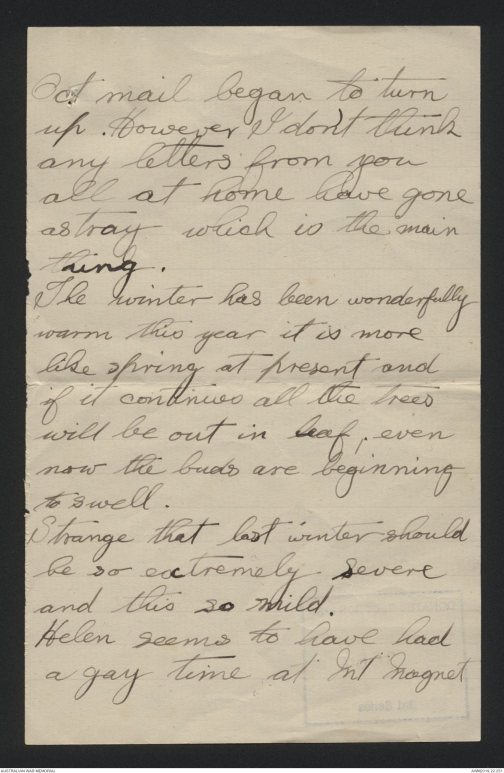 Oct mail began to turn
up. However I don't think
any letters from you
all at home have gone
astray which is the main
thing.
The winter has been wonderfully
warm this year it is more
like spring at present and
if it continues all the trees
will be out in leaf, even
now the buds are beginning
to swell.
Strange that last winter should
be so extremely severe
and this so mild.
Helen seems to have had
a gay time at Mt Magnet
3rd Series
AUSTRALIAN WAR MEMORIAL